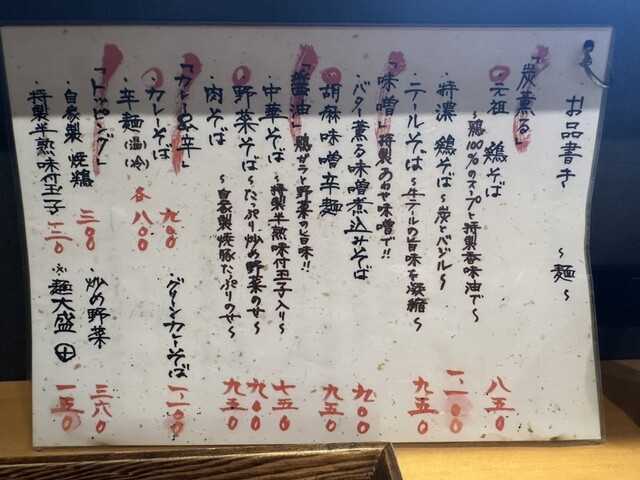 お品書き 〜麺〜
「炭薫る」
元祖 鶏そば 八五〇
〜鶏100%のスープと特製香味油で〜
特濃 鶏そば 〜炭とバジル〜 一、一〇〇
テールそば 〜牛テールの旨味を凝縮〜 九五〇
「味噌」特製あわせ味噌で!!
バター薫る味噌煮込みそば 九〇〇
胡麻味噌辛麺 九五〇
「醤油」鶏ガラと野菜の旨味!!
中華そば 〜特製半熟味付玉子入り〜 七五〇
野菜そば 〜たっぷり炒め野菜のせ〜 九〇〇
肉そば 〜自家製焼豚たっぷりのせ〜 九五〇
「カレー&辛」
カレーそば 九〇〇
グリーンカレーそば 一、一〇〇
辛麺(温・冷) 各八〇〇
「トッピング」
自家製 焼鶏 三〇〇
炒め野菜 三六〇
特製半熟味付玉子 一三〇
※麺大盛 ⊕ 一五〇